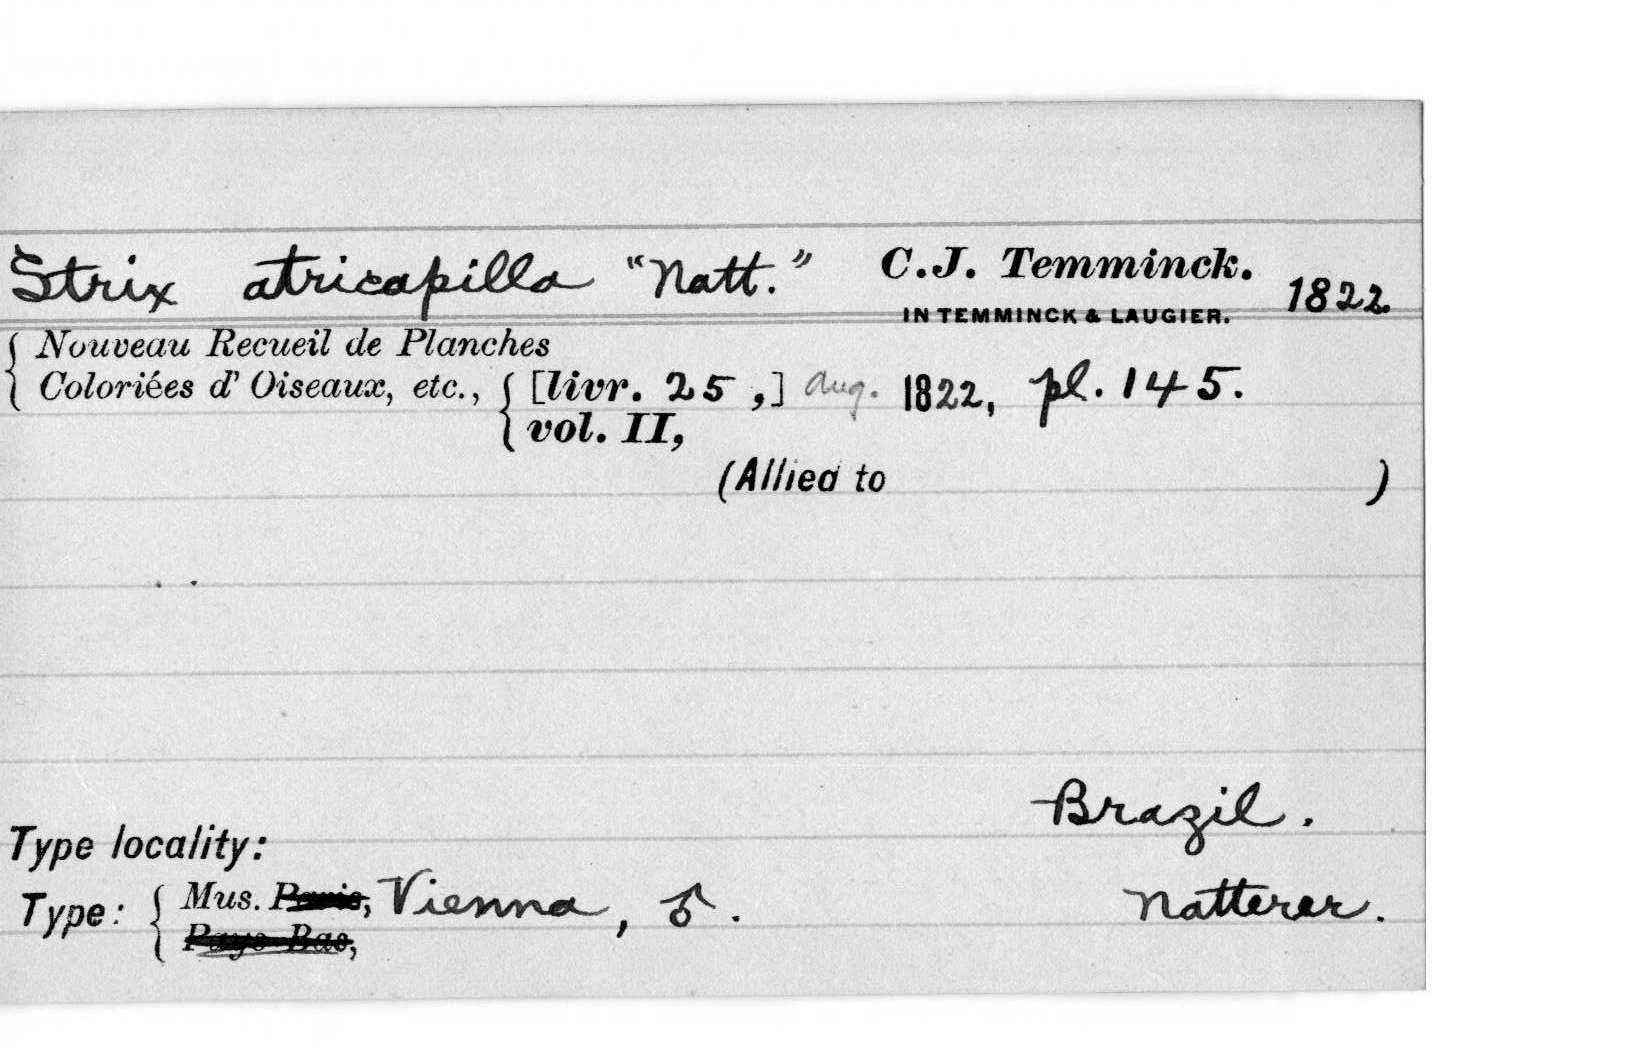 Strix atricapilla "Natt." C.J. Temminck. 1822.
IN TEMMINCK & LAUGIER.
Nouveau Recueil de Planches
Coloriées d' Oiseaux, etc., [livr. 25,] Aug. 1822, pl. 145.
vol. II,
(Allied to )
Brazil.
Type locality:
Type: Mus. Paris, Vienna, ♂. Natterer.
Pays-Bas,